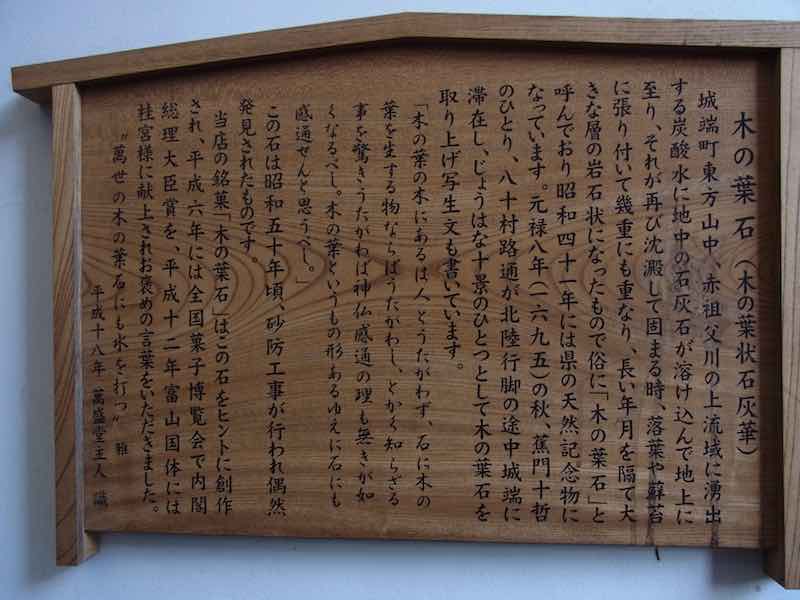 木の葉石（木の葉状石灰華）
城端町東方山中、赤祖父川の上流域に湧出
する炭酸水に地中の石灰石が溶け込んで地上に
至り、それが再び沈澱して固まる時、落葉や蘚苔
に張り付いて幾重にも重なり、長い年月を隔て大
きな層の岩石状になったもので俗に「木の葉石」と
呼んでおり昭和四十一年には県の天然記念物に
なっています。元禄八年（一六九五）の秋、蕉門十哲
のひとり、八十村路通が北陸行脚の途中城端に
滞在し、じょうはな十景のひとつとして木の葉石を
取り上げ写生文も書いています。
「木の葉の木にあるは人とうたがわず、石に木の
葉を生する物ならばうたがわし、とかく知らざる
事を驚きうたがわば神仏感通の理も無きが如
くなるべし。木の葉というもの形あるゆえに石にも
感通せんと思うべし。」
この石は昭和五十年頃、砂防工事が行われ偶然
発見されたものです。
当店の銘菓「木の葉石」はこの石をヒントに創作
され、平成六年には全国菓子博覧会で内閣
総理大臣賞を、平成十二年富山国体には
桂宮様に献上されお褒めの言葉をいただきました。
〝萬世の木の葉石にも水を打つ〟 雅
平成十八年 萬盛堂主人 識